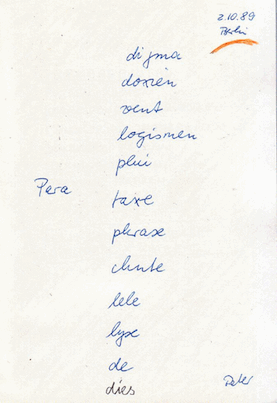 2.10.89
Berlin
digma
doxien
vent
logismen
plui
Para
taxe
phrase
chute
lele
lyse
de
dies
Peter